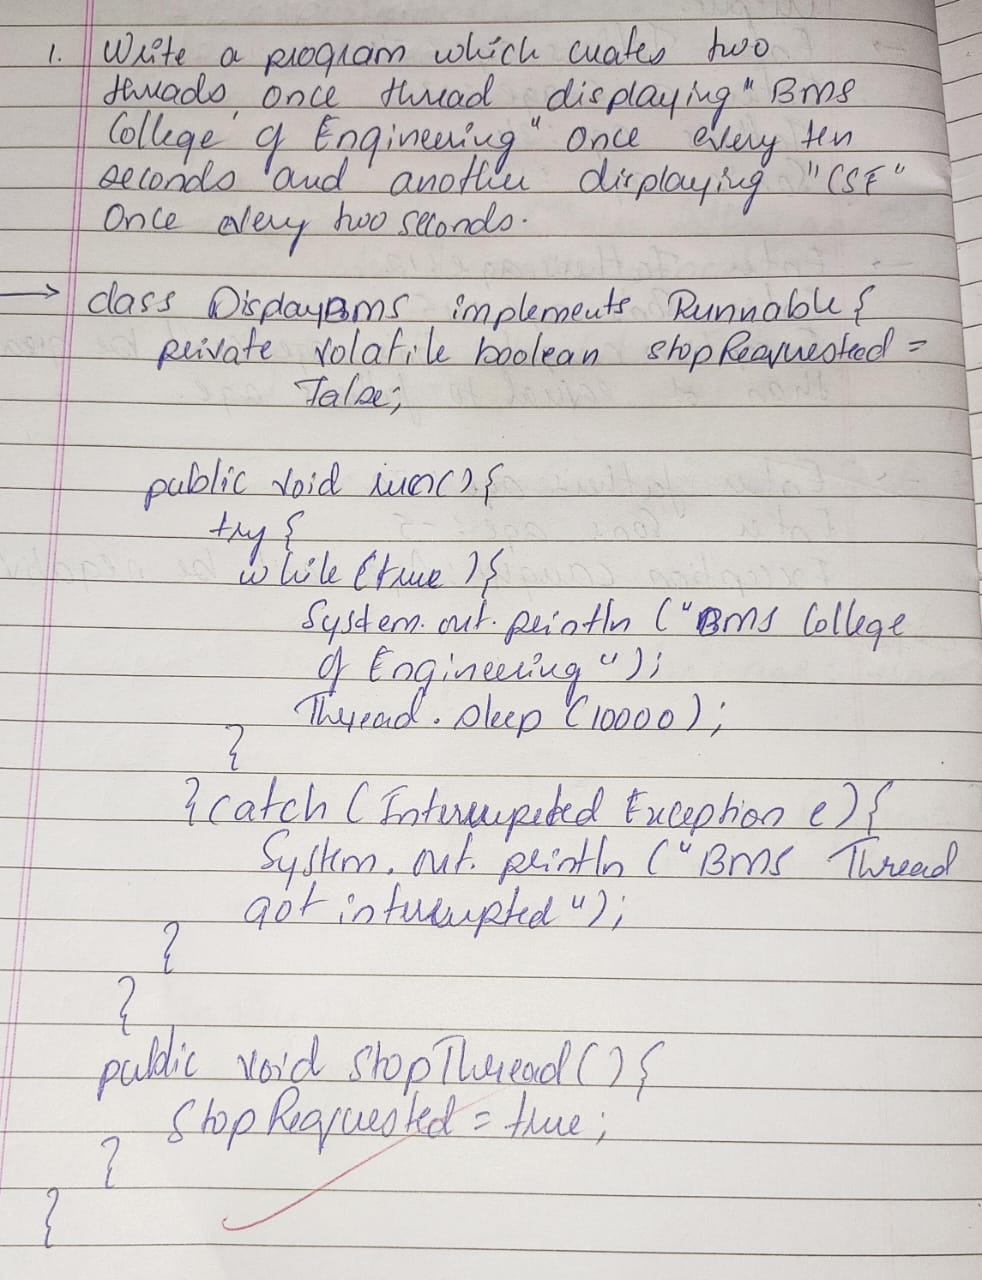 1. Write a program which creates two
threads once thread displaying "BMS
College of Engineering" once every ten
seconds and another displaying "CSE"
Once every two seconds.
→ class DisplayBMS implements Runnable {
private volatile boolean stopRequested =
False;
public void run() {
try {
while (true) {
System.out.println ("BMS College
of Engineering");
Thread.sleep (10000);
}
} catch (Interrupted Exception e) {
System.out.println ("BMS Thread
got interrupted");
}
}
public void stopThread() {
stopRequested = true;
}
}